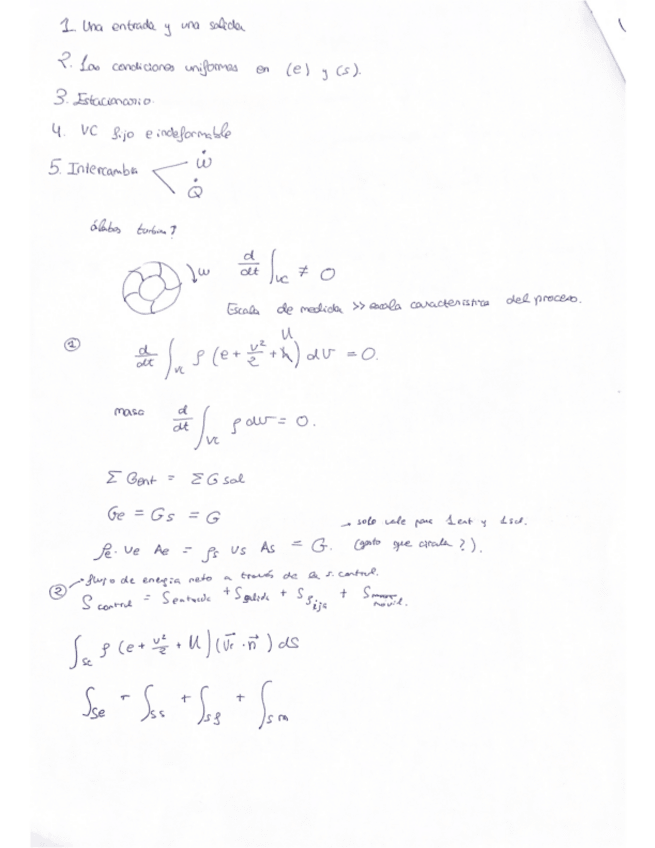 1. Una entrada y una salida
2. Las condiciones uniformes en (e) y (s).
3. Estacionario.
4. VC fijo e indeformable
5. Intercambia
Ẇ
Q̇
álabes turbina?
ω
d/dt ∫vc ≠ 0
Escala de medida >> escala característica del proceso.
① d/dt ∫vc ρ (e + v²/2 + U) dV = 0.
masa d/dt ∫vc ρ dV = 0.
Σ Gent = Σ G sal
Ge = Gs = G
→ solo vale para 1 ent y 1 sal.
ρe · ve Ae = ρs vs As = G. (gasto que circula?).
② → flujo de energía neto a través de la s. control.
S control = S entrada + S salida + S fija + S móvil.
∫sc ρ (e + v²/2 + U) (v⃗r · n⃗) dS
∫se + ∫ss + ∫sf + ∫sm